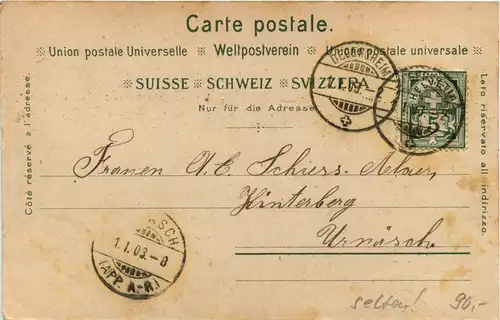 Carte postale.
Union postale Universelle Weltpostverein Unione postale universale
SUISSE SCHWEIZ SVIZZERA
Nur für die Adresse
Côté réservé à l'adresse.
Lato riservato all indirizzo.
DEGERSHEIM
1.I.03
HELVETIA
5
A. C. Schiess
Hinterberg
Urnäsch.
SCH
1.I.03.-8
(APP. A.-R.)
selten! 90,-